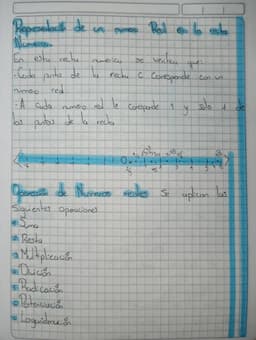 Representación de un numero Real en la recta
Numerica.
En esta recta numerica se verifica que:
- Cada punto de la recta C Corresponde con un
numero real
- A cada numero real le corresponde 1 y solo 1 de
los puntos de la recta
0
Operación de Numeros reales se aplican las
Siguientes operaciones
Suma
Resta
Multiplicación
División
Radicación
Potenciación
Logaritmación